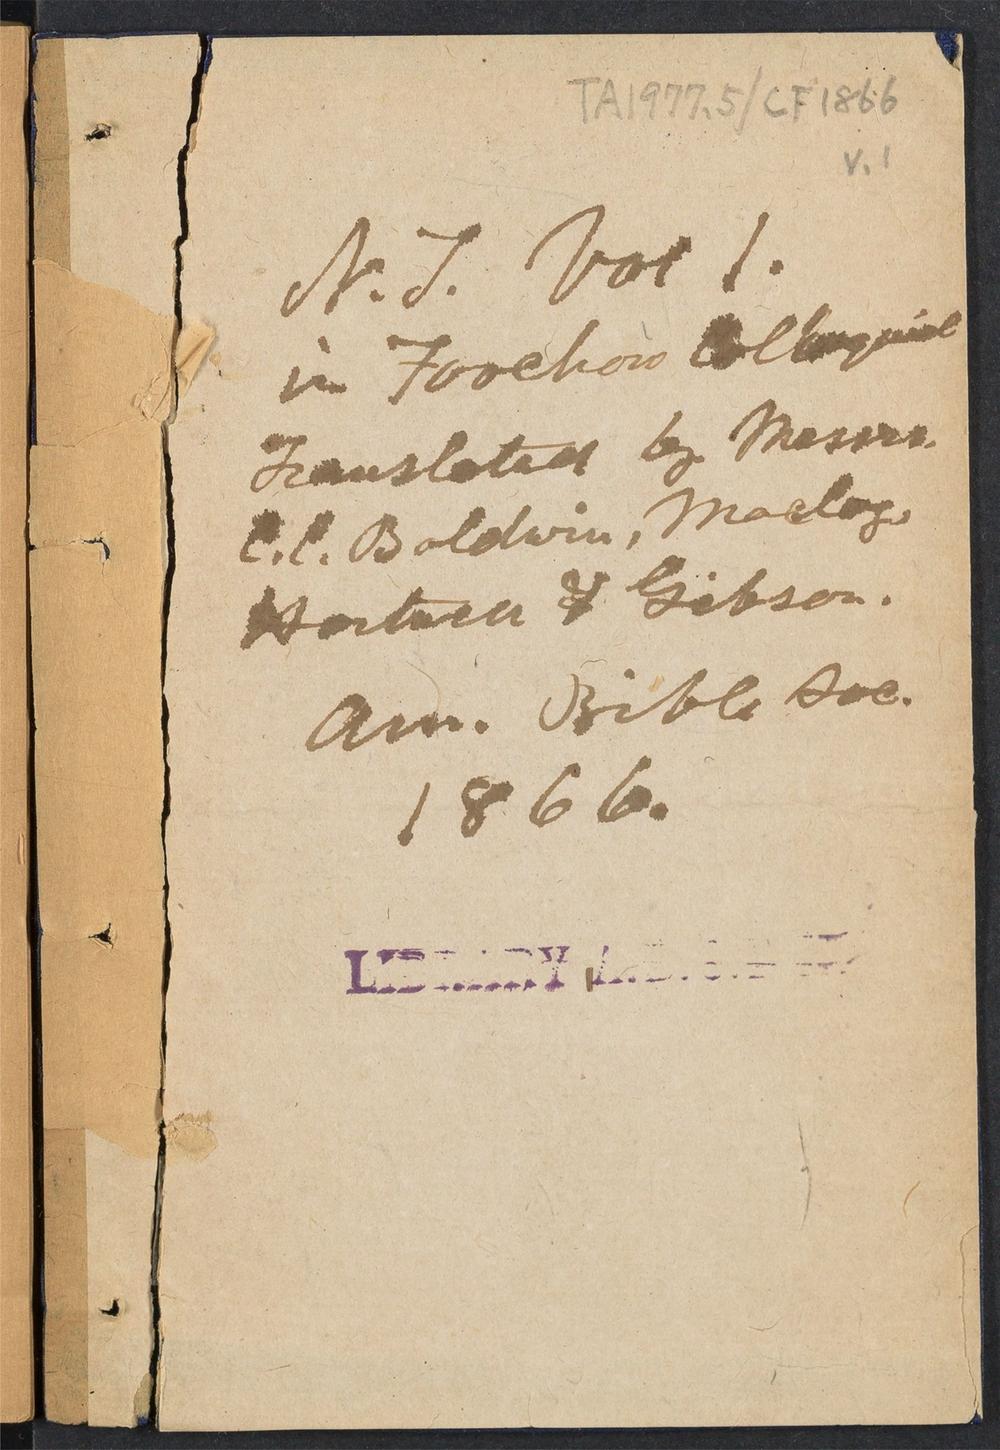 TA1977.5/CF1866
v.1
N.T. Vol 1.
in Foochow Colloquial
Translated by Messrs.
C.C. Baldwin, Maclay,
Hartwell & Gibson.
Am. Bible Soc.
1866.
LIBRARY